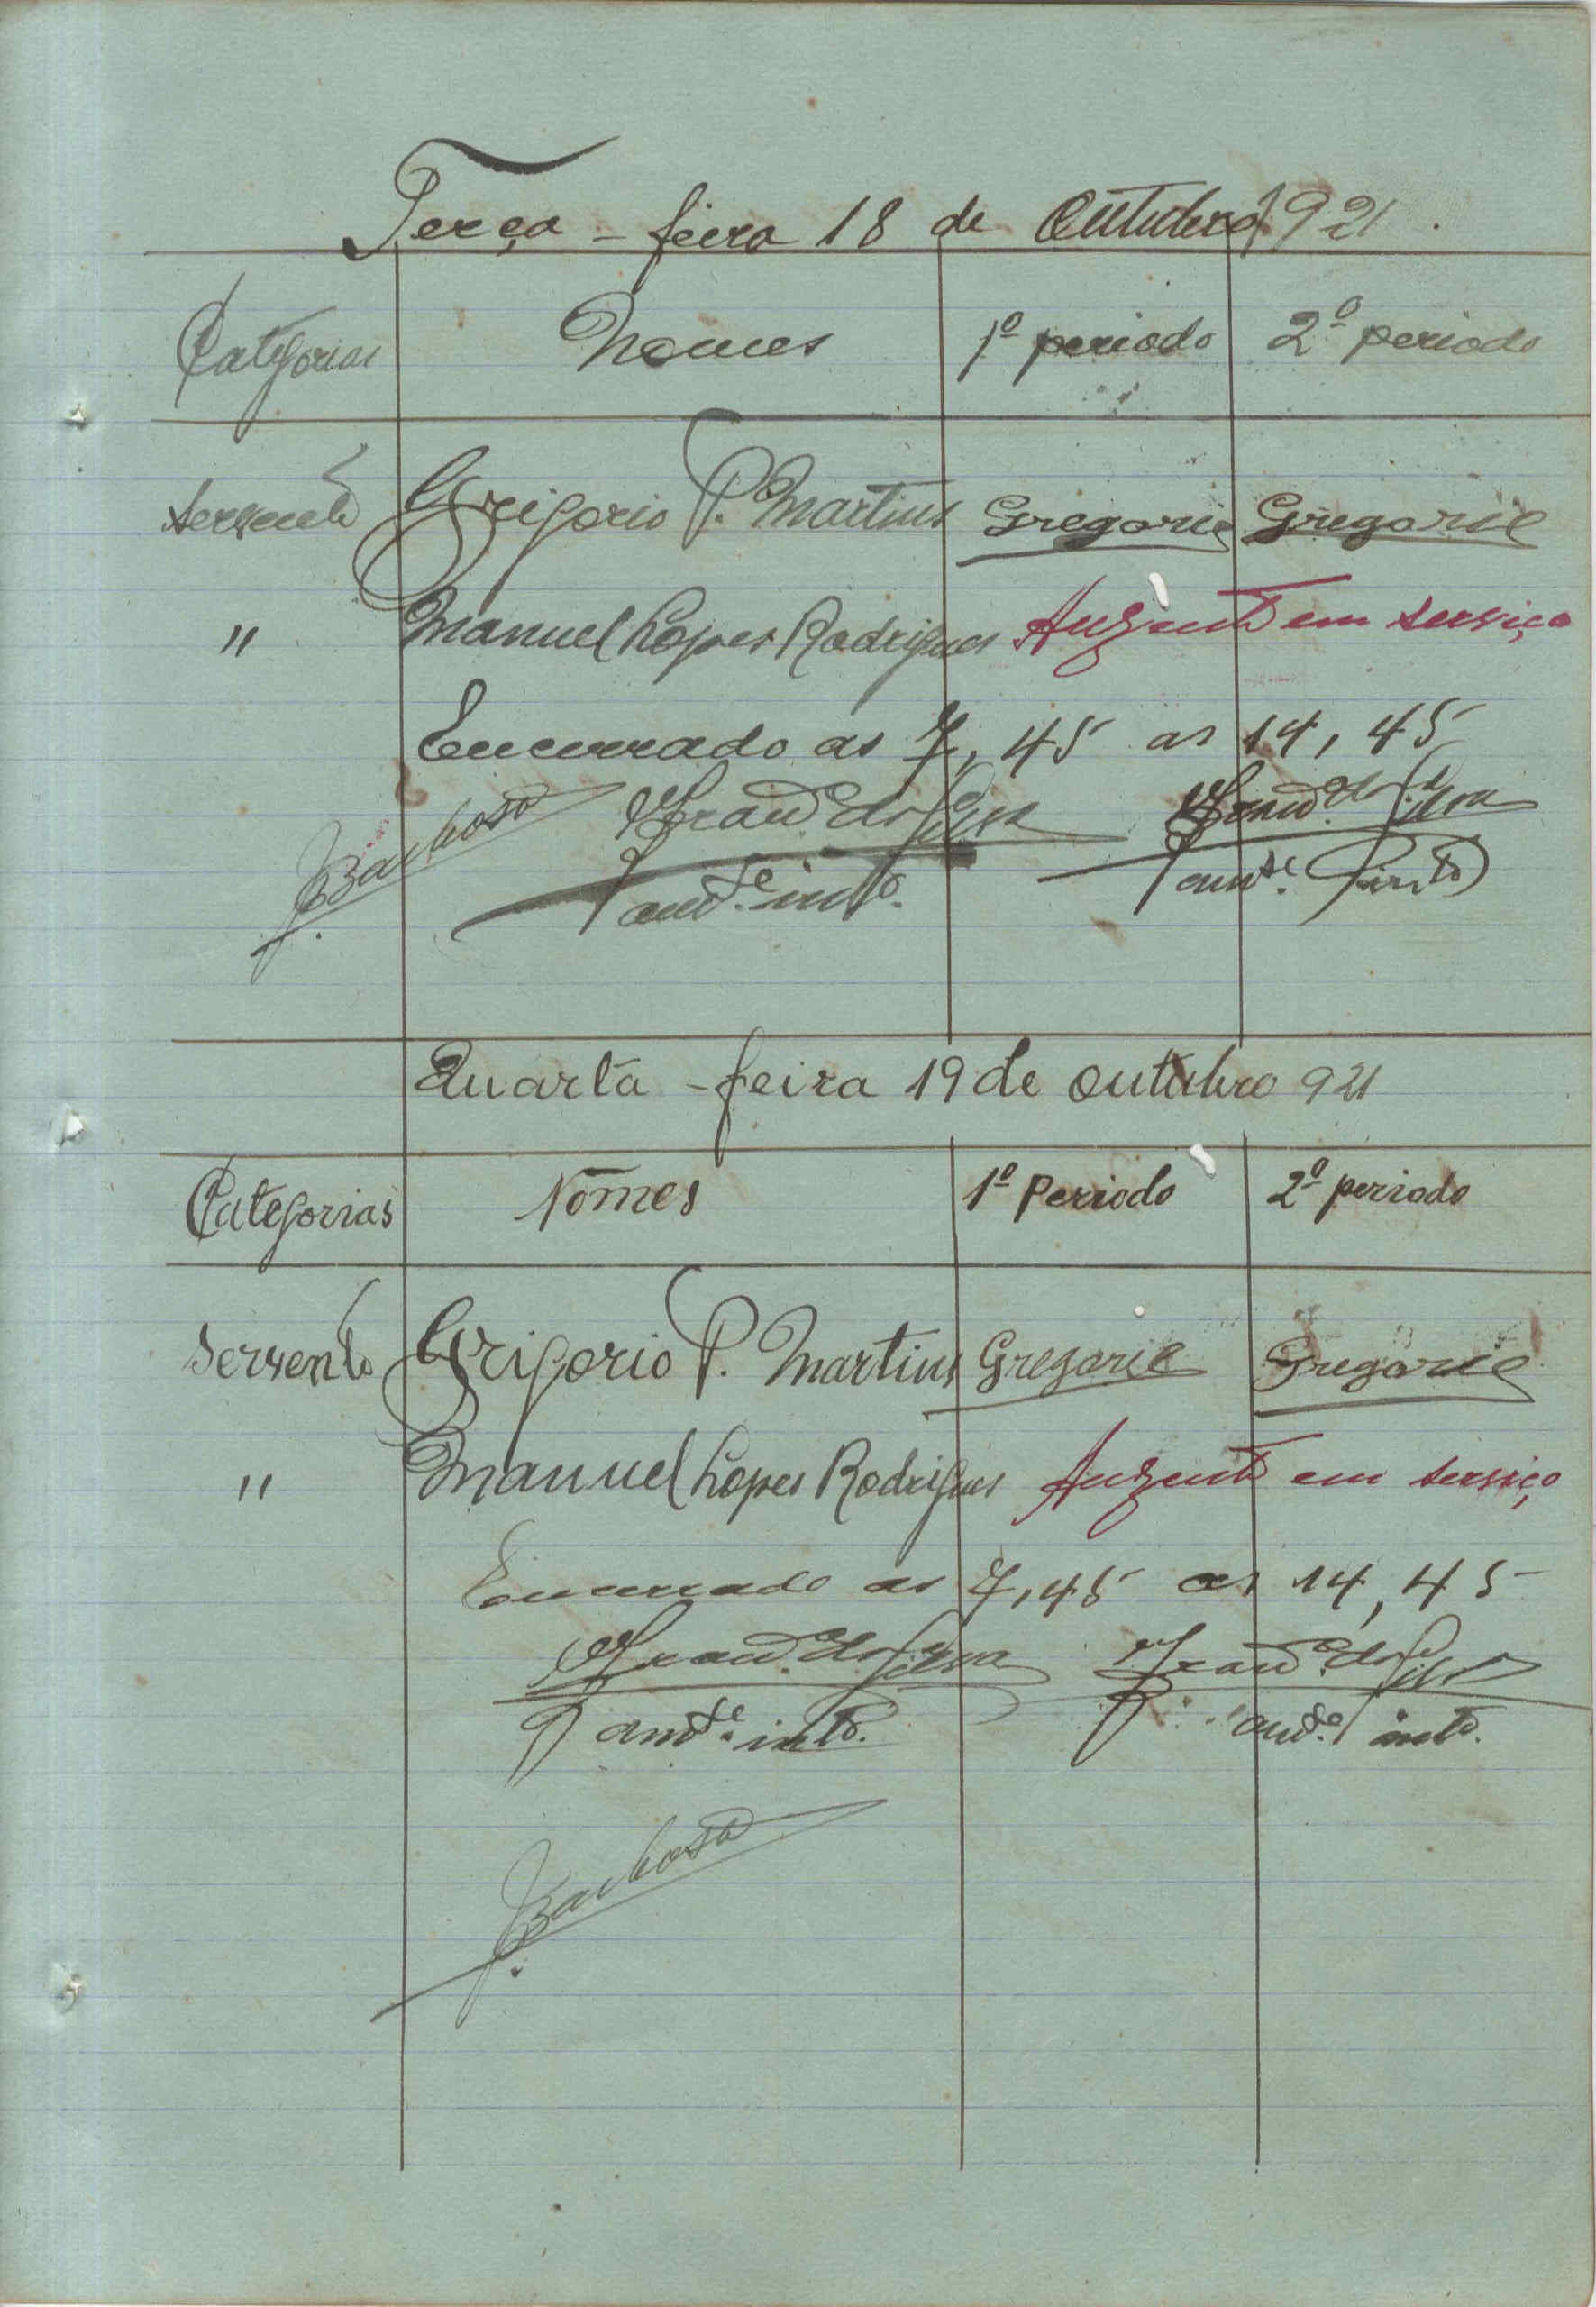 Terça - feira 18 de Outubro 1921
Categorias Nomes 1º periodo 2º periodo
Servente Grigorio P. Martins Gregorio Gregorio
" Manuel Lopes Rodrigues Auzente em serviço
Encerrado as 7,45 as 14,45
JBarbosa Franco. da Silva Franco. da Silva
amte. into. amte. into
Quarta - feira 19 de outubro 921
Categorias Nomes 1º Periodo 2º periodo
Servente Grigorio P. Martins Gregorio Gregorio
" Manuel Lopes Rodrigues Auzente em serviço
Encerrado as 7,45 as 14,45
Franco. da Silva Franco. da Silva
amte. into. amte. into.
JBarbosa